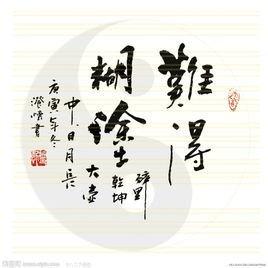 難得
糊塗
醉里
乾坤
大壺
中日月長
庚寅年冬
書